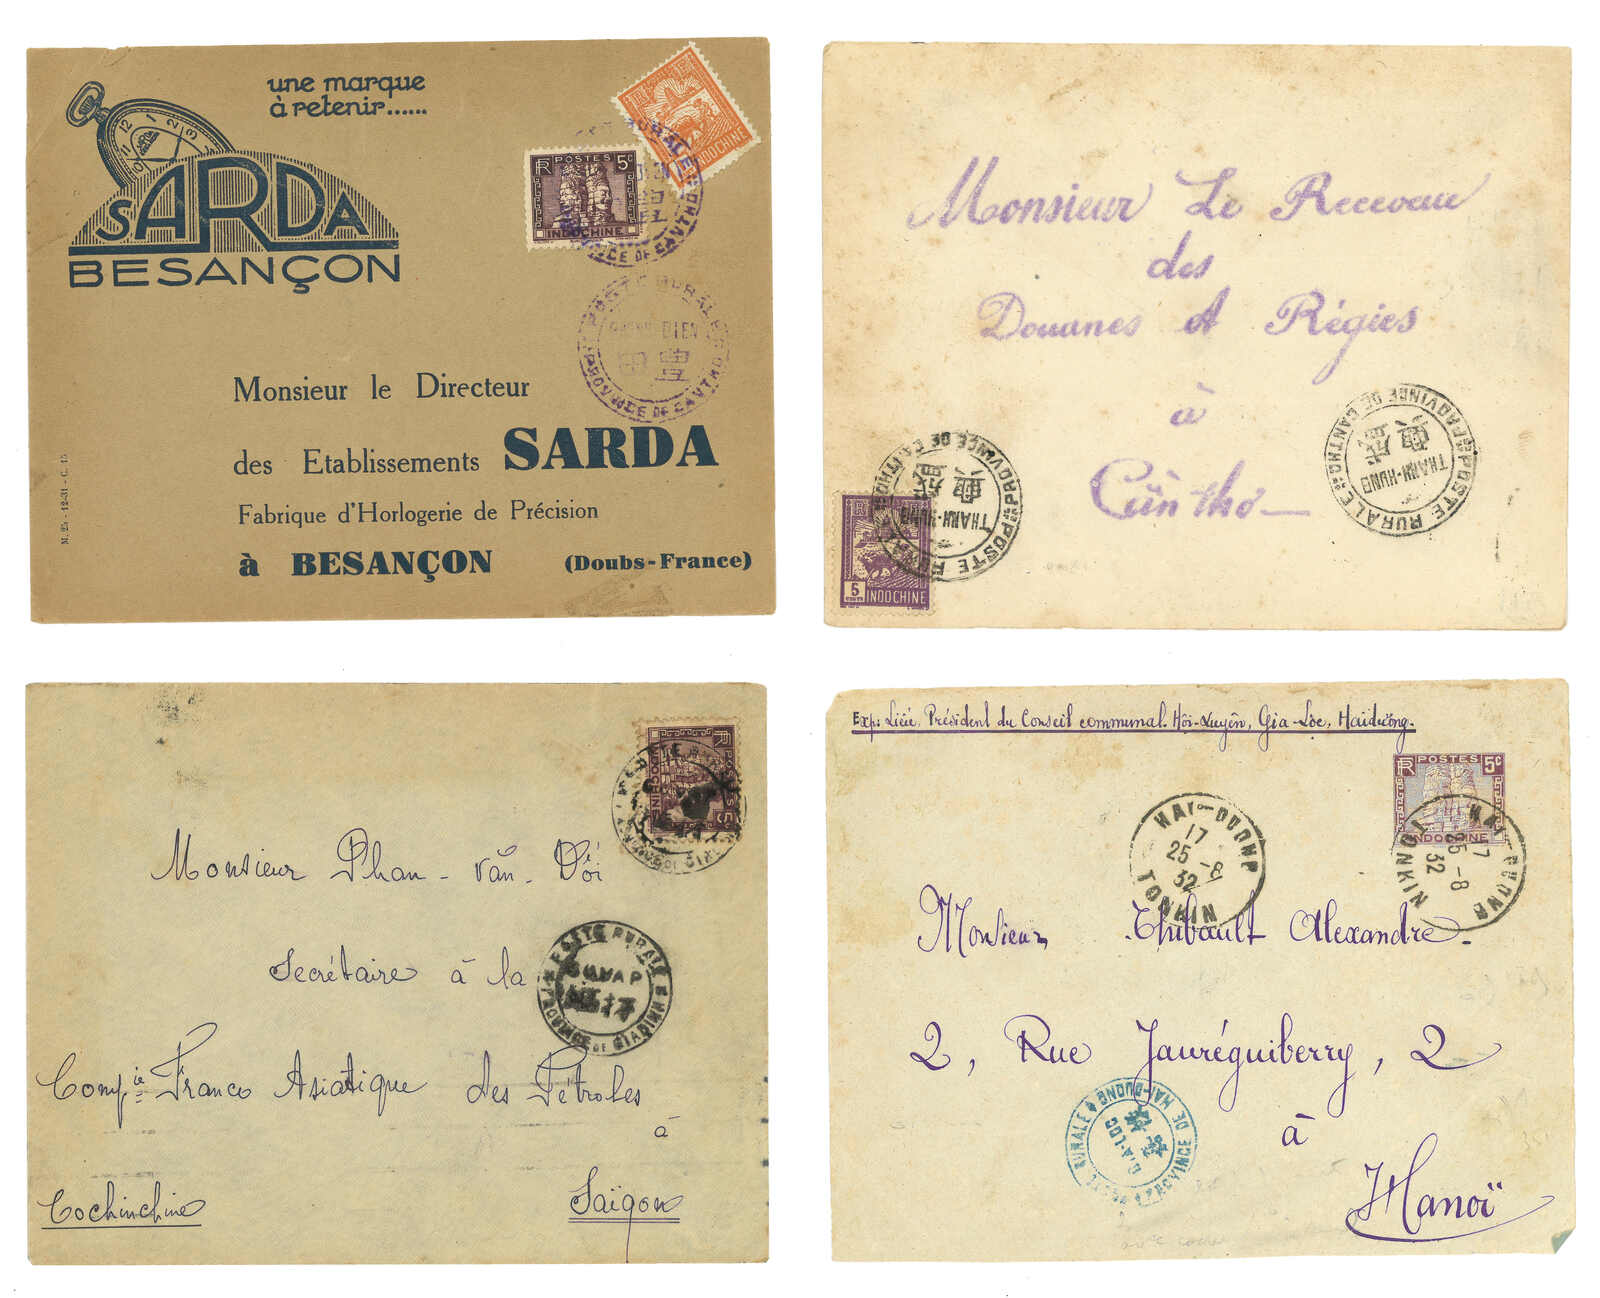 une marque
à retenir......
12 1 2 3
11
10
SARDA
SARDA
BESANÇON
RF POSTES 5c
INDOCHINE
INDOCHINE
RURALE
PROVINCE DE CANTHO
POSTE RURALE
DIEN
PROVINCE DE CANTHO
Monsieur le Directeur
des Etablissements SARDA
Fabrique d'Horlogerie de Précision
à BESANÇON (Doubs-France)
M. 25 - 12-31 - C. 15
Monsieur Le Receveur
des
Douanes et Régies
à
Cần thơ
POSTE RURALE
THANH-HUNG
PROVINCE DE CANTHO
POSTE RURALE
THANH-HUNG
PROVINCE DE CANTHO
RF
5
CENTS
INDOCHINE
RF POSTES 5c
INDOCHINE
Monsieur Phan - văn - Đôi
Secrétaire à la
POSTE RURALE
GOVAP
PROVINCE DE GIADINH
Compie Franco Asiatique des Pétroles
à
Cochinchine
Saïgon
Exp: Liêu, Président du Conseil communal. Hội-Xuyên, Gia-Lộc, Haidương.
RF POSTES 5c
INDOCHINE
HAI-DUONG
17
25-8
32
TONKIN
HAI-DUONG
17
25-8
32
TONKIN
Monsieur Thibault Alexandre.
2, Rue Jauréguiberry, 2
à
Hanoï
POSTE RURALE
GIA-LOC
PROVINCE DE HAI-DUONG